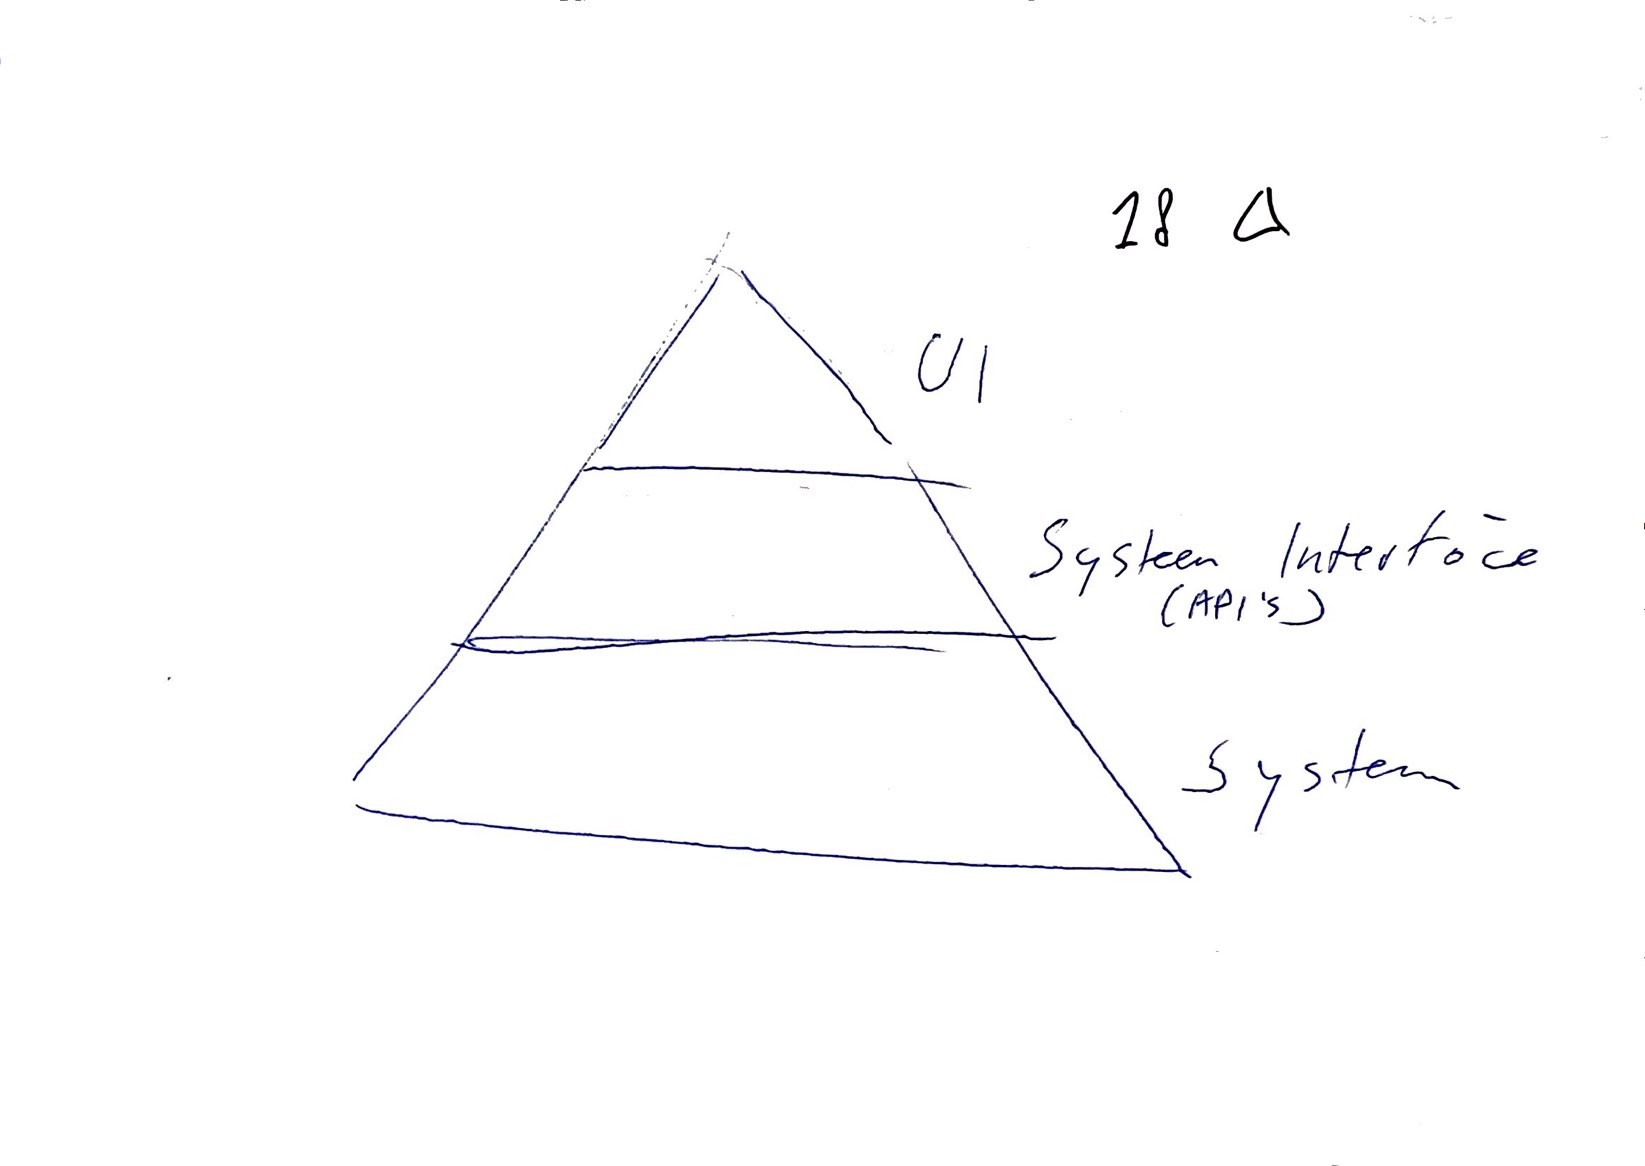 18 Δ
UI
System Interface
(API's)
System